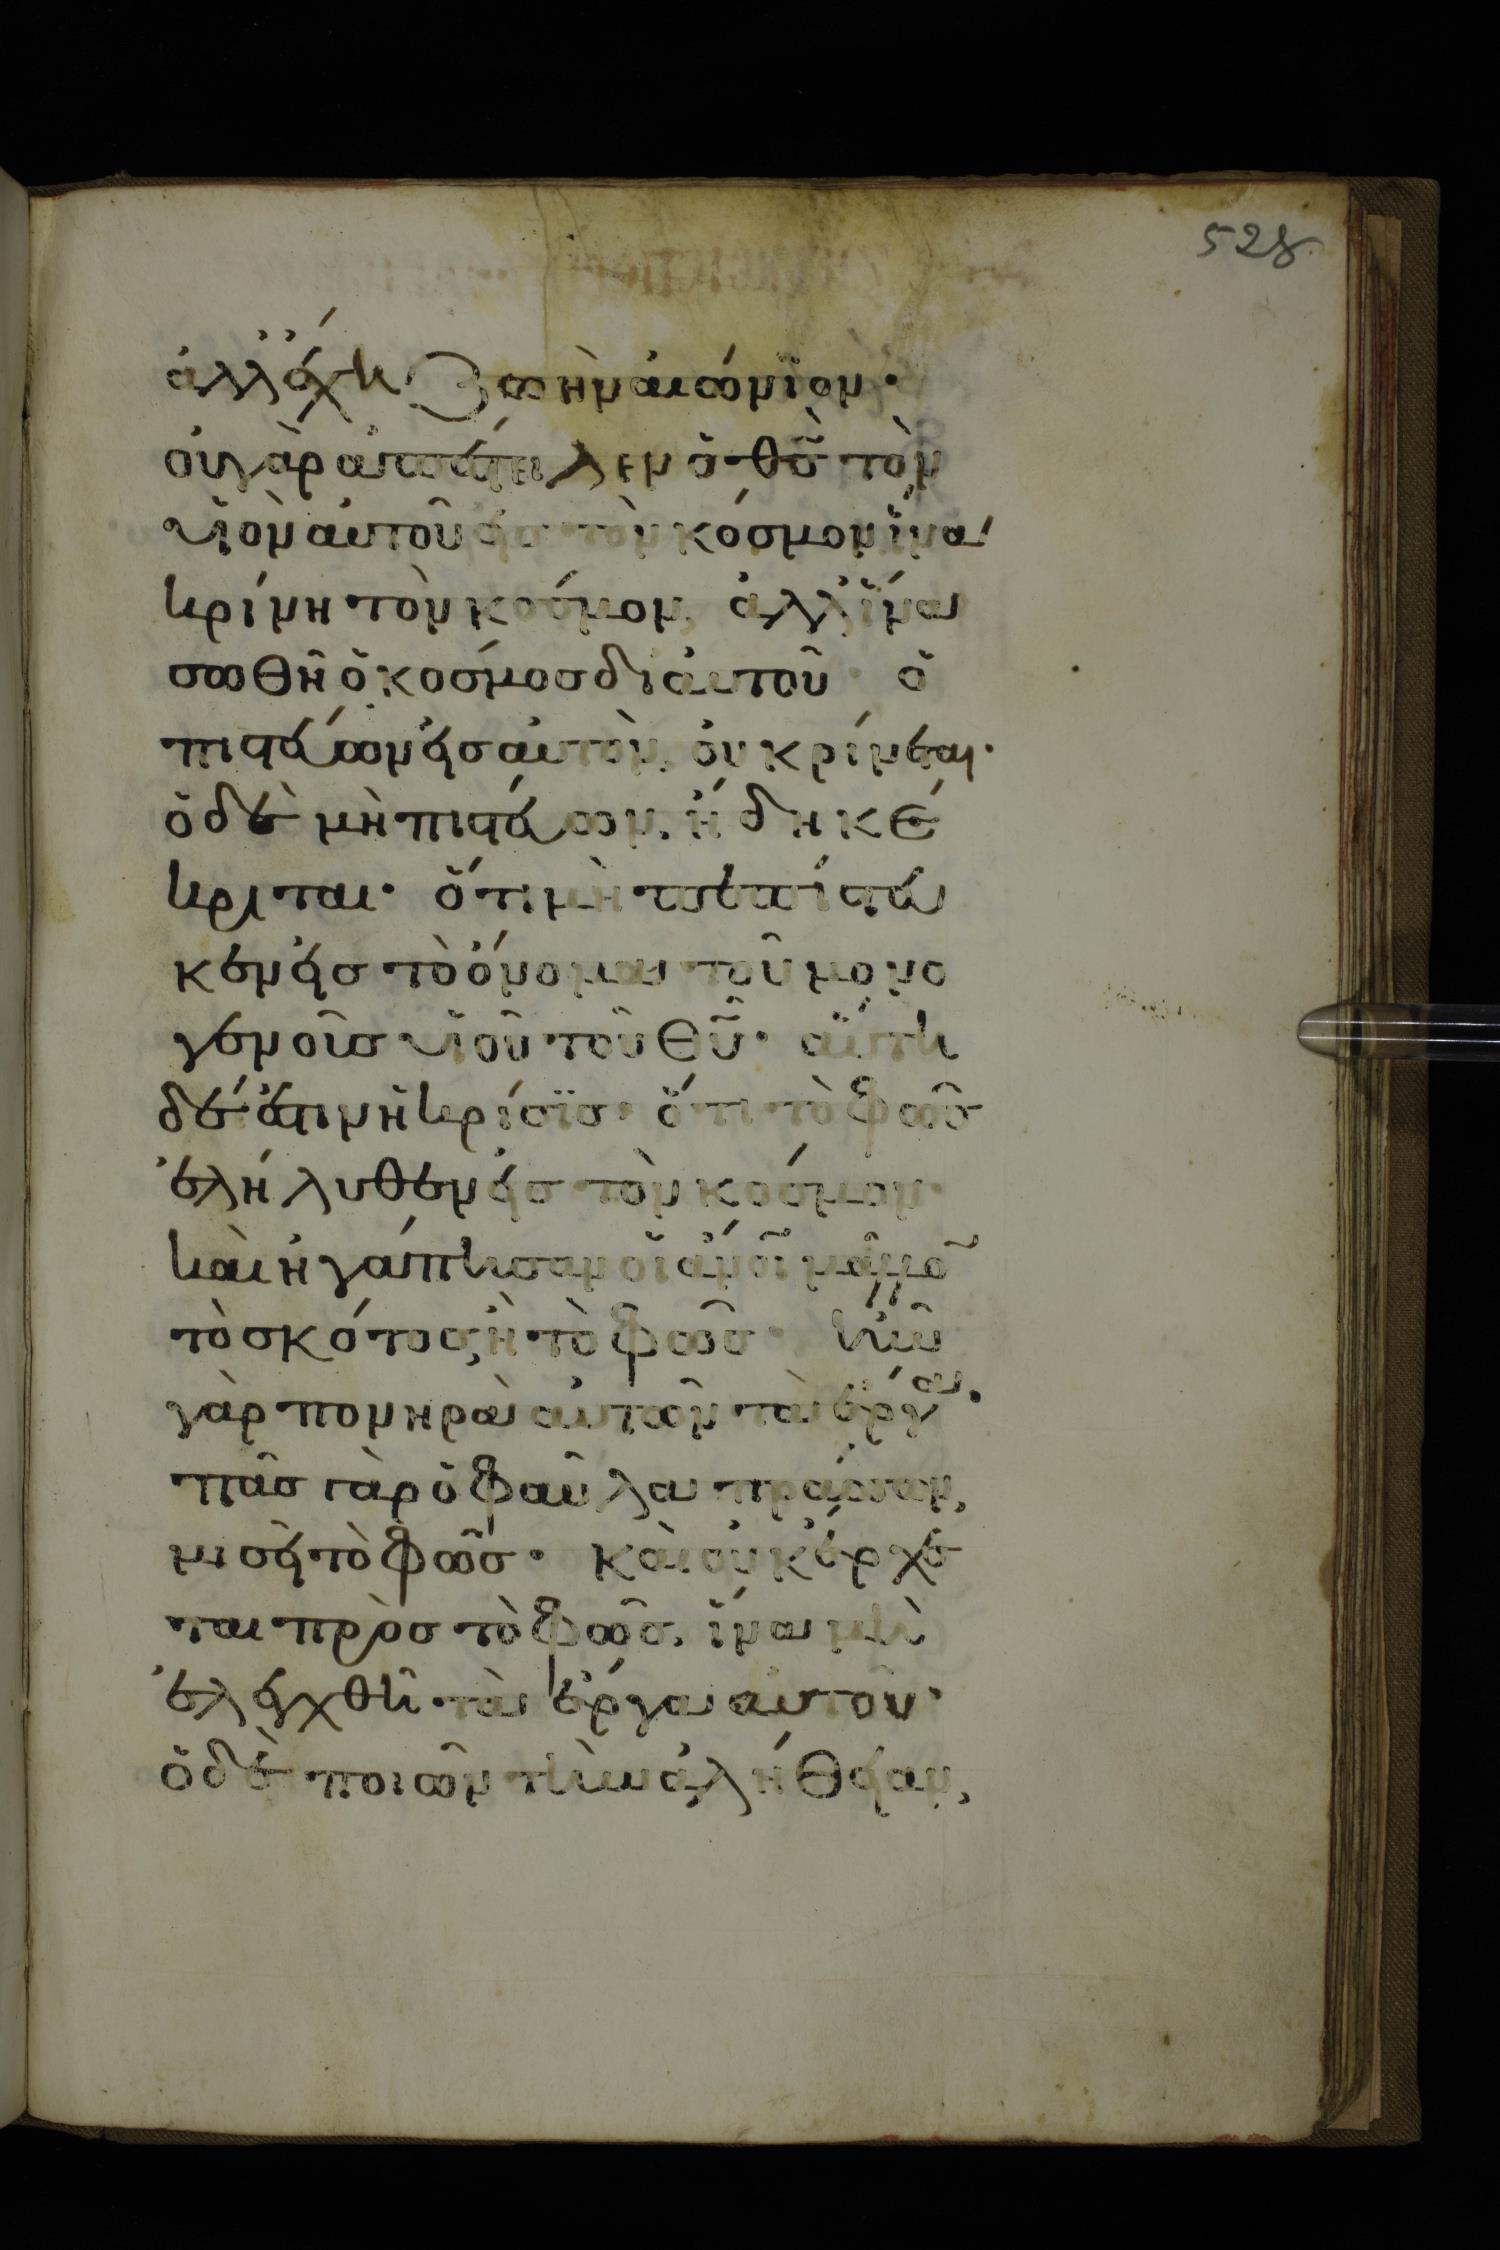 528
ἀλλ ἔχη ζωὴν αἰώνϊον·
οὐ γὰρ ἀπέστειλεν ὁ θς τὸν
υἱὸν αὐτοῦ εἰς τὸν κόσμον ἵνα
κρίνη τὸν κόσμον, ἀλλ ἵνα
σωθῆ ὁ κόσμος δι αὐτοῦ· ὁ
πιστεύων εἰς αὐτὸν, οὐ κρίνεται·
ὁ δὲ μὴ πιστεύων, ἤδη κέ
κριται· ὅτι μὴ πεπίστευ
κεν εἰς τὸ ὄνομα τοῦ μονο
γενοῦς υἱοῦ τοῦ θυ· αὕτη
δέ ἐστιν ἡ κρίσϊς· ὅτι τὸ φῶς
ἐλήλυθεν εἰς τὸν κόσμον·
καὶ ἠγάπησαν οἱ ἀνοι μᾶλλο
τὸ σκότος, ἢ τὸ φῶς· ἦν
γὰρ πονηρὰ αὐτῶν τὰ ἔργα·
πᾶς γὰρ ὁ φαῦλα πράσσων,
μισεῖ τὸ φῶς· καὶ οὐκ ἔρχε
ται πρὸς τὸ φῶς, ἵνα μὴ
ἐλεγχθῆ τὰ ἔργα αὐτοῦ·
ὁ δὲ ποιῶν τὴν ἀλήθειαν,